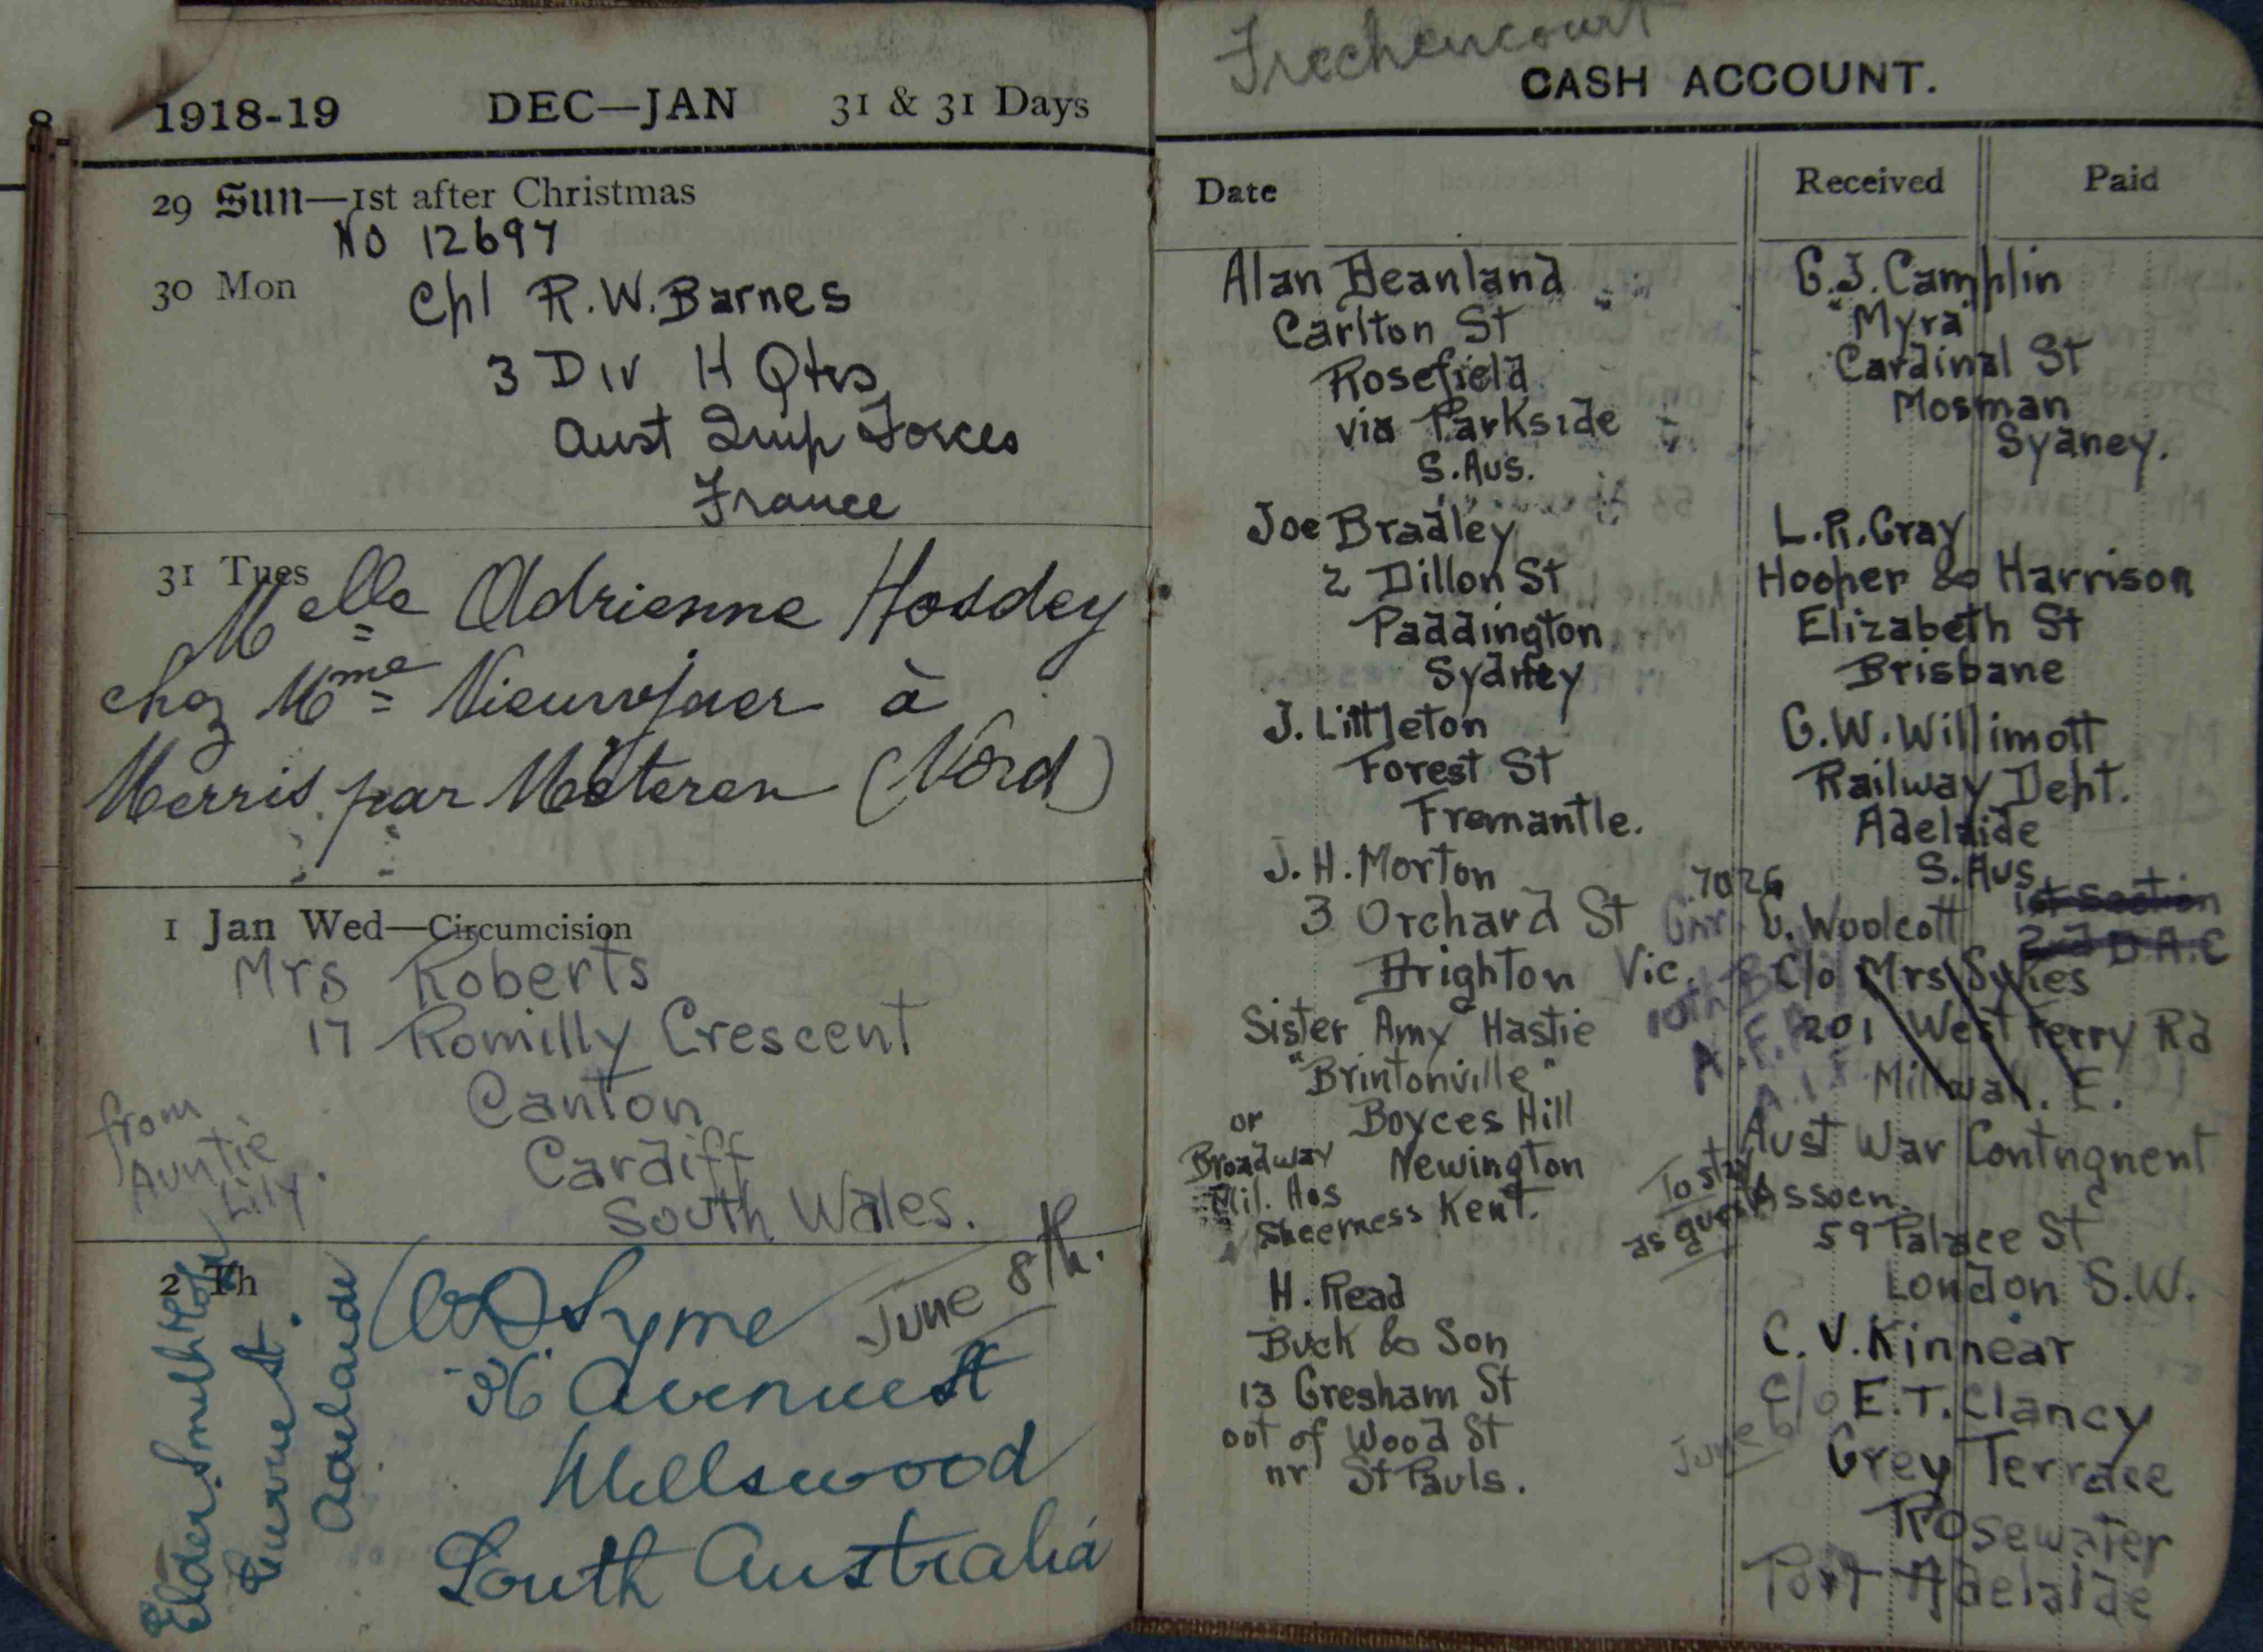 1918-19 DEC—JAN 31 & 31 Days
29 Sun—1st after Christmas
No 12697
30 Mon
Cpl R.W. Barnes
3 Div H Qtrs
Aust Imp Forces
France
31 Tues
Melle Adrienne Hosdey
chez Mme Nieuwjaer à
Merris par Méteren (Nord)
1 Jan Wed—Circumcision
Mrs Roberts
17 Romilly Crescent
Canton
Cardiff
South Wales.
from
Auntie
Lily.
2 Th
Syme
June 8th.
36 Avenue St
Millswood
South Australia
Elder Smith
Currie St.
Adelaide
Frechencourt
CASH ACCOUNT.
Date Received Paid
Alan Beanland
Carlton St
Rosefield
via Parkside
S.Aus.
Joe Bradley
2 Dillon St
Paddington
Sydney
J. Littleton
Forest St
Fremantle.
J.H. Morton
3 Orchard St
Brighton Vic.
Sister Amy Hastie
"Brintonville"
or Boyces Hill
Broadway Newington
Mil. Hos
Sheerness Kent.
H. Read
Buck & Son
13 Gresham St
out of Wood St
nr St Pauls.
G.J. Camplin
"Myra"
Cardinal St
Mosman
Sydney.
L.R. Gray
Hooper & Harrison
Elizabeth St
Brisbane
G.W. Willimott
Railway Dept.
Adelaide
S.Aus.
7026
Gnr. Woolcott
1st Section
2nd D.A.C
10th
C/o Mrs Sykes
201 West Ferry Rd
Millwall. E.
Aust War Contngnent
Assocn.
To stay
as guest
59 Palace St
London S.W.
C.V. Kinnear
c/o E.T. Clancy
June 6
Grey Terrace
Rosewater
Port Adelaide